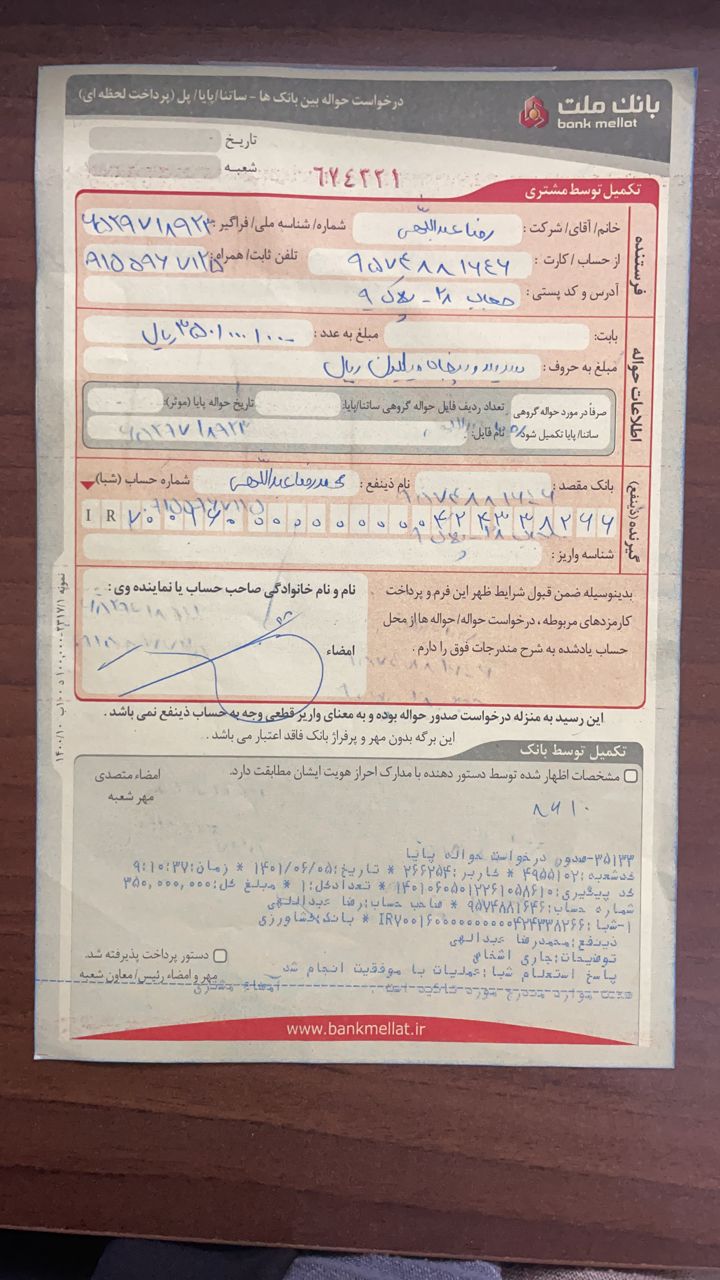 بانک ملت
bank mellat
درخواست حواله بین بانک ها - ساتنا/پایا/پل (پرداخت لحظه ای)
تاریخ
شعبه
٦٧٤٣٢١
تکمیل توسط مشتری
فرستنده
خانم/آقای/شرکت: رضا عبداللهی شماره/شناسه ملی/فراگیر:
از حساب/کارت: ۹۵۷۴۸۸۱۶۴۶ تلفن ثابت/همراه: ۹۱۵۵۹۶۷۱۲۵
آدرس و کد پستی: حجاب ۲۸ - پلاک ۹
اطلاعات حواله
بابت: مبلغ به عدد: ۳۵۰/۰۰۰/۰۰۰ ریال
مبلغ به حروف: سیصد و پنجاه میلیون ریال
صرفاً در مورد حواله گروهی ساتنا/پایا تکمیل شود:
تعداد ردیف فایل حواله گروهی ساتنا/پایا: تاریخ حواله پایا (موثر):
نام فایل:
گیرنده (ذینفع)
بانک مقصد: نام ذینفع: محمدرضا عبداللهی شماره حساب (شبا)
IR ۷۰ ۰۱۶۰ ۰۰۰۰ ۰۰۰۰ ۰۴۲۴ ۳۳۸۲ ۶۶
شناسه واریز:
بدینوسیله ضمن قبول شرایط ظهر این فرم و پرداخت
کارمزدهای مربوطه، درخواست حواله/حواله ها از محل
حساب یادشده به شرح مندرجات فوق را دارم.
نام و نام خانوادگی صاحب حساب یا نماینده وی:
امضاء
این رسید به منزله درخواست صدور حواله بوده و به معنای واریز قطعی وجه به حساب ذینفع نمی باشد.
این برگه بدون مهر و پرفراژ بانک فاقد اعتبار می باشد.
تکمیل توسط بانک
مشخصات اظهار شده توسط دستور دهنده با مدارک احراز هویت ایشان مطابقت دارد.
امضاء متصدی
مهر شعبه
۸۶۱۰
۳۵۱۳۳-صدور درخواست حواله پایا
کدشعبه:۴۹۵۵۱۰۲ * کاربر:۲۶۶۲۵۴ * تاریخ:۱۴۰۱/۰۶/۰۵ * زمان:۹:۱۰:۳۷
کد پیگیری:۱۴۰۱۰۶۰۵۰۱۲۲۶۱۰۵۸۶۱۰ * تعدادکل:۱ * مبلغ کل:۳۵۰,۰۰۰,۰۰۰
شماره حساب:۹۵۷۴۸۸۱۶۴۶ * صاحب حساب:رضا عبدالهی
۱-شبا:IR۷۰۰۱۶۰۰۰۰۰۰۰۰۰۰۴۲۴۳۳۸۲۶۶ * بانک:کشاورزی
ذینفع:محمدرضا عبدالهی
توضیحات:جاری اشخاص
پاسخ استعلام شبا:عملیات با موفقیت انجام شد
صحت موارد مندرج مورد تائید است. امضاء مشتری
دستور پرداخت پذیرفته شد.
مهر و امضاء رئیس/معاون شعبه
www.bankmellat.ir